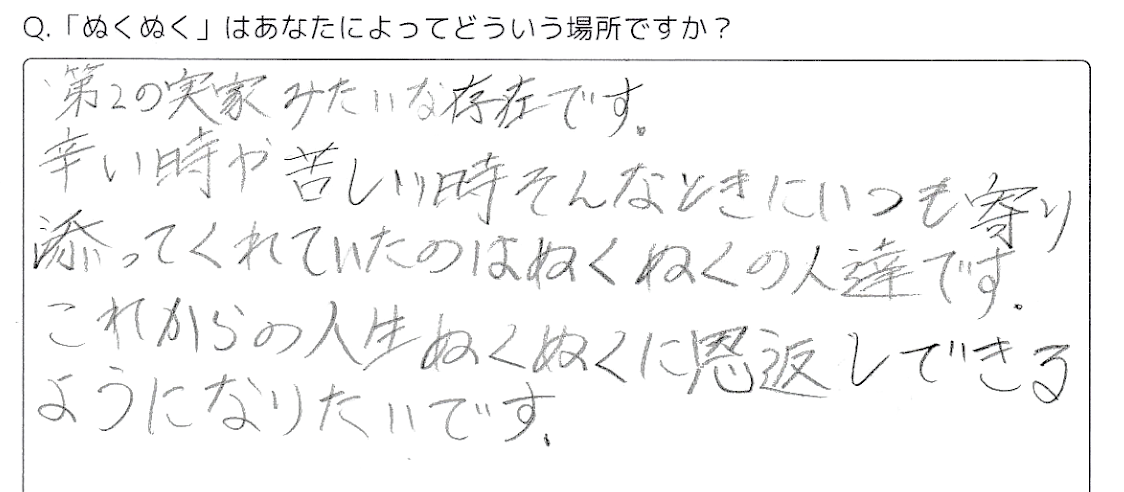 Q.「ぬくぬく」はあなたによってどういう場所ですか？
第2の実家みたいな存在です。
辛い時や苦しい時そんなときにいつも寄り
添ってくれていたのはぬくぬくの人達です。
これからの人生ぬくぬくに恩返しできる
ようになりたいです。